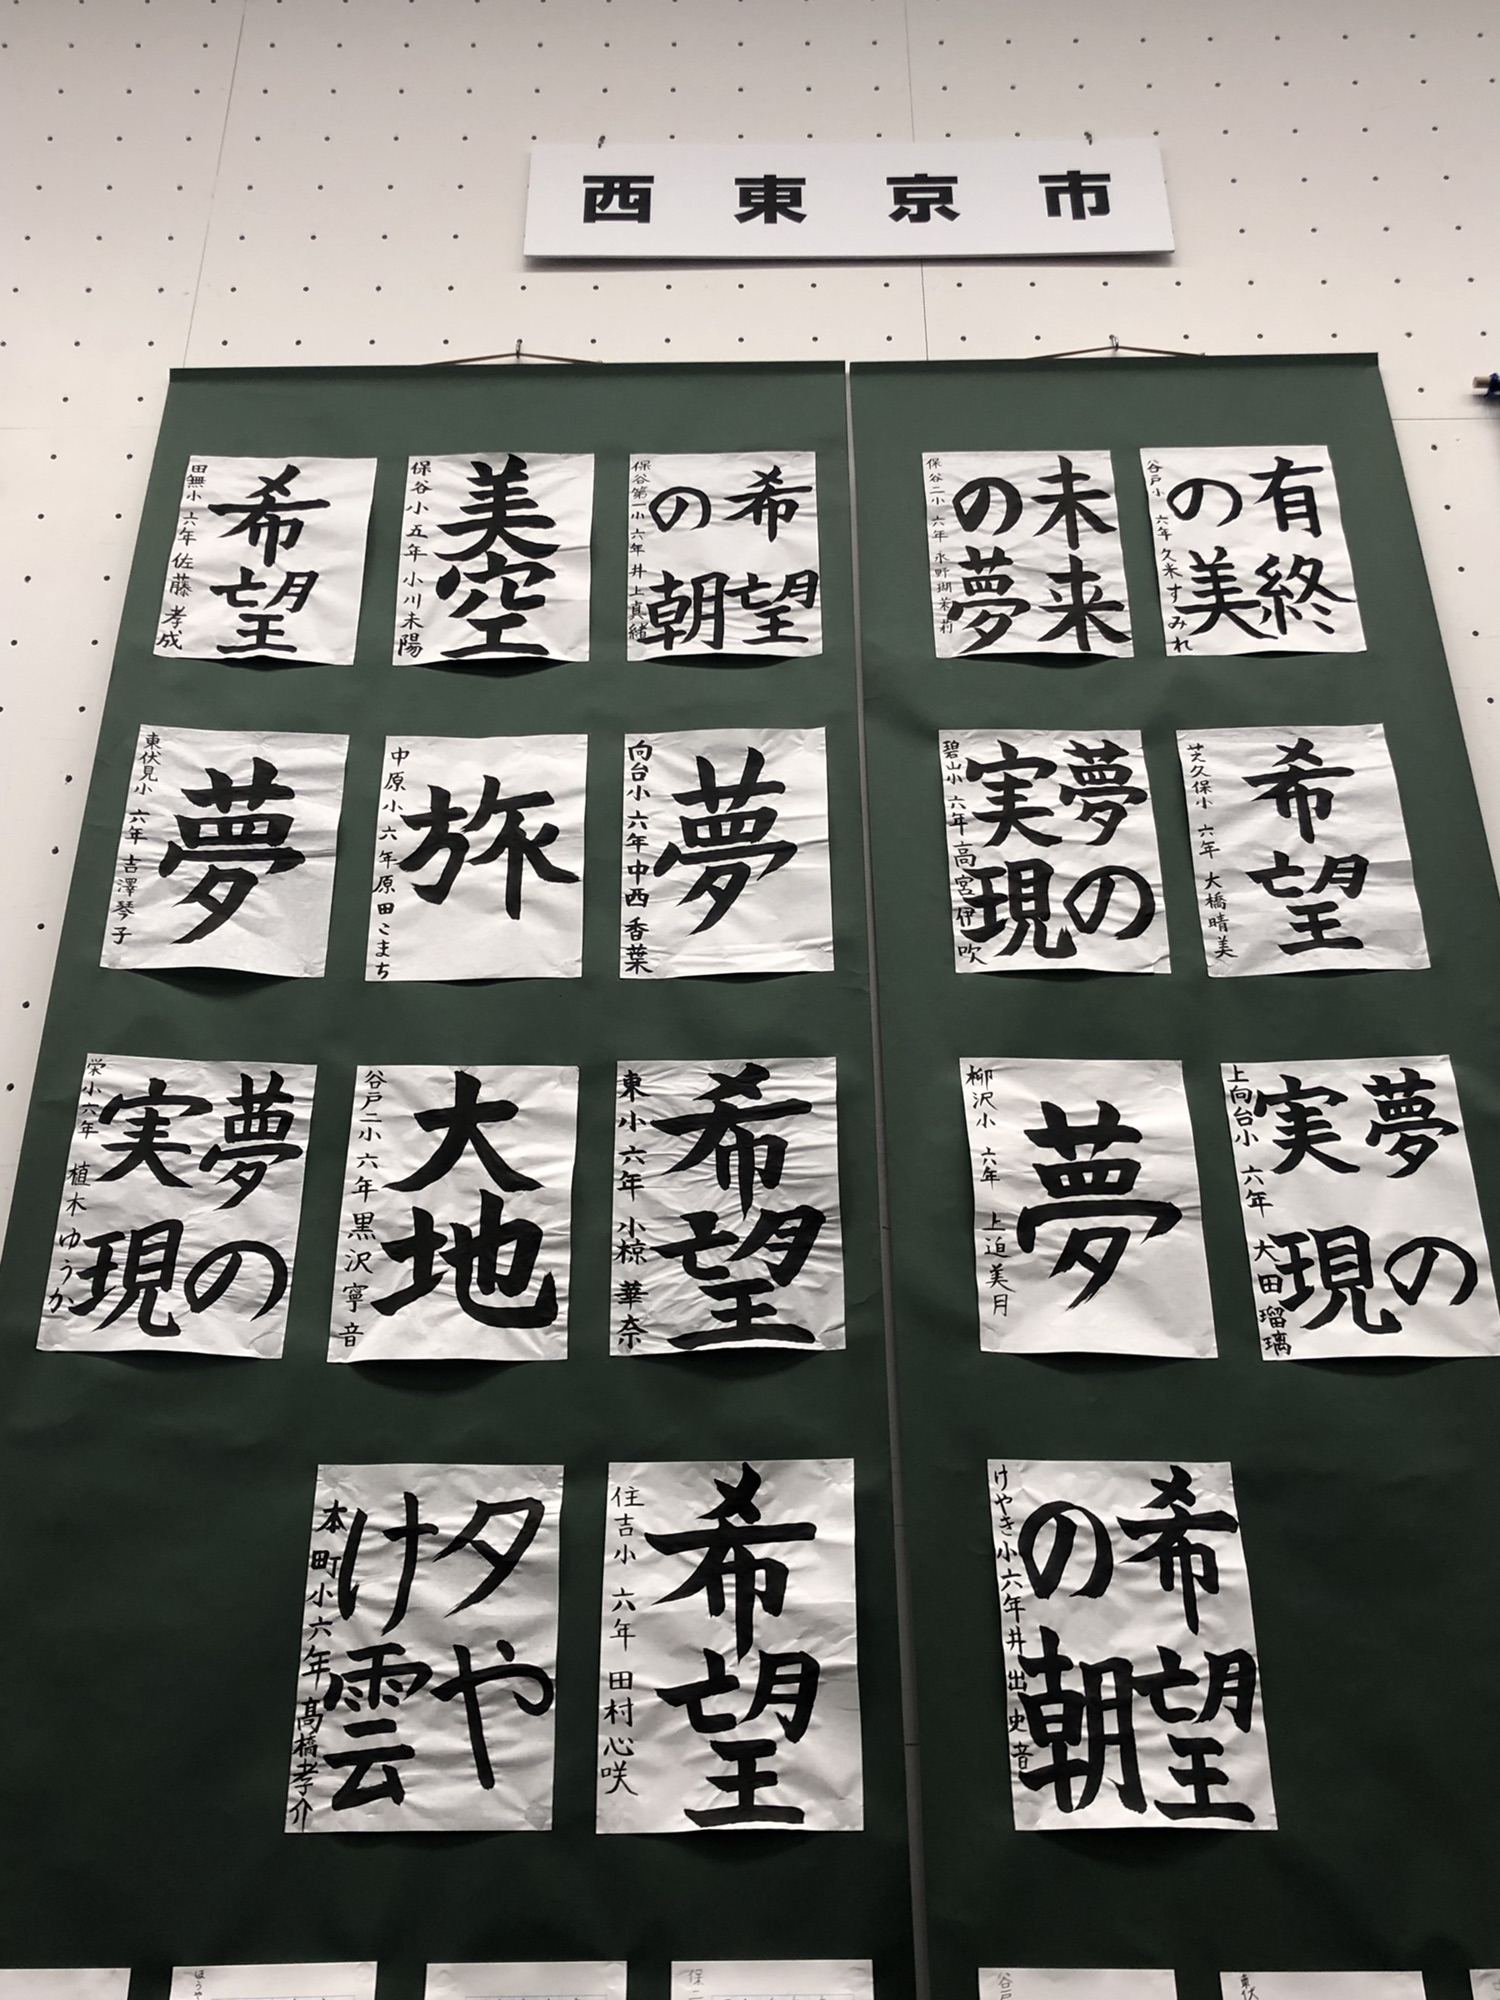 西東京市
有終
の美
谷戸小 六年 久米すみれ
未来
の夢
保谷二小 六年 水野瑚茉莉
希望
の朝
保谷第一小 六年 井上真緒
美空
保谷小五年 小川未陽
希望
田無小 六年 佐藤孝成
希望
芝久保小 六年 大橋晴美
夢の
実現
碧山小 六年 高宮伊吹
夢
向台小 六年 中西香葉
旅
中原小 六年 原田こまち
夢
東伏見小 六年 吉澤琴子
夢の
実現
上向台小 六年 大田瑠璃
夢
柳沢小 六年 上迫美月
希望
東小 六年 小椋華奈
大地
谷戸二小 六年 黒沢寧音
夢の
実現
栄小 六年 植木ゆうか
希望
の朝
けやき小 六年 井出史音
希望
住吉小 六年 田村心咲
夕や
け雲
本町小 六年 髙橋孝介